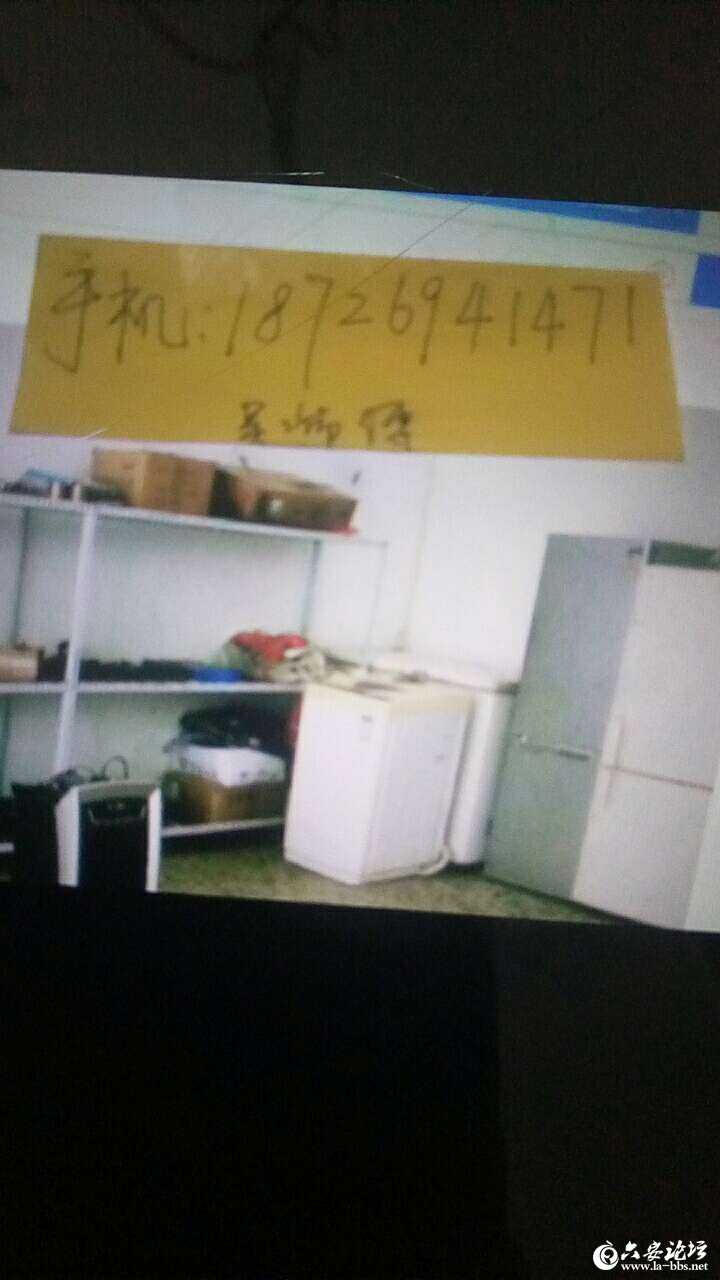 手机:18726941471
吴师傅
六安论坛
www.la-bbs.net